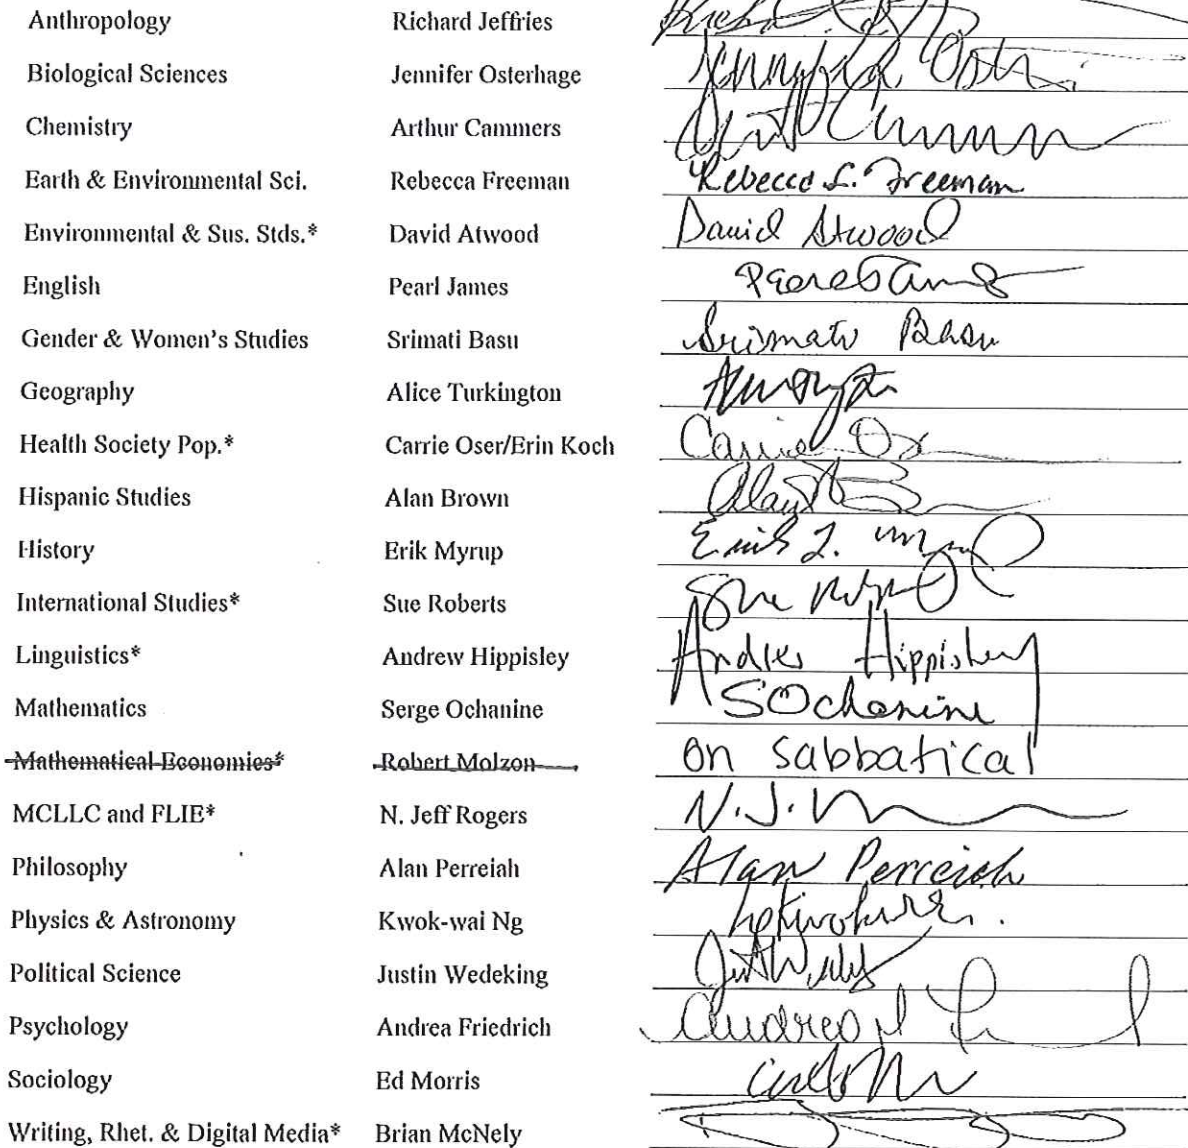 Anthropology Richard Jeffries
Biological Sciences Jennifer Osterhage
Chemistry Arthur Cammers
Earth & Environmental Sci. Rebecca Freeman Rebecca L. Freeman
Environmental & Sus. Stds.* David Atwood David Atwood
English Pearl James
Gender & Women's Studies Srimati Basu Srimati Basu
Geography Alice Turkington
Health Society Pop.* Carrie Oser/Erin Koch Carrie
Hispanic Studies Alan Brown
History Erik Myrup
International Studies* Sue Roberts Sue
Linguistics* Andrew Hippisley Andrew Hippisley
Mathematics Serge Ochanine SOchanine
Mathematical Economics* Robert Molzon on sabbatical
MCLLC and FLIE* N. Jeff Rogers N.J.
Philosophy Alan Perreiah Alan Perreiah
Physics & Astronomy Kwok-wai Ng
Political Science Justin Wedeking
Psychology Andrea Friedrich Andrea
Sociology Ed Morris
Writing, Rhet. & Digital Media* Brian McNely